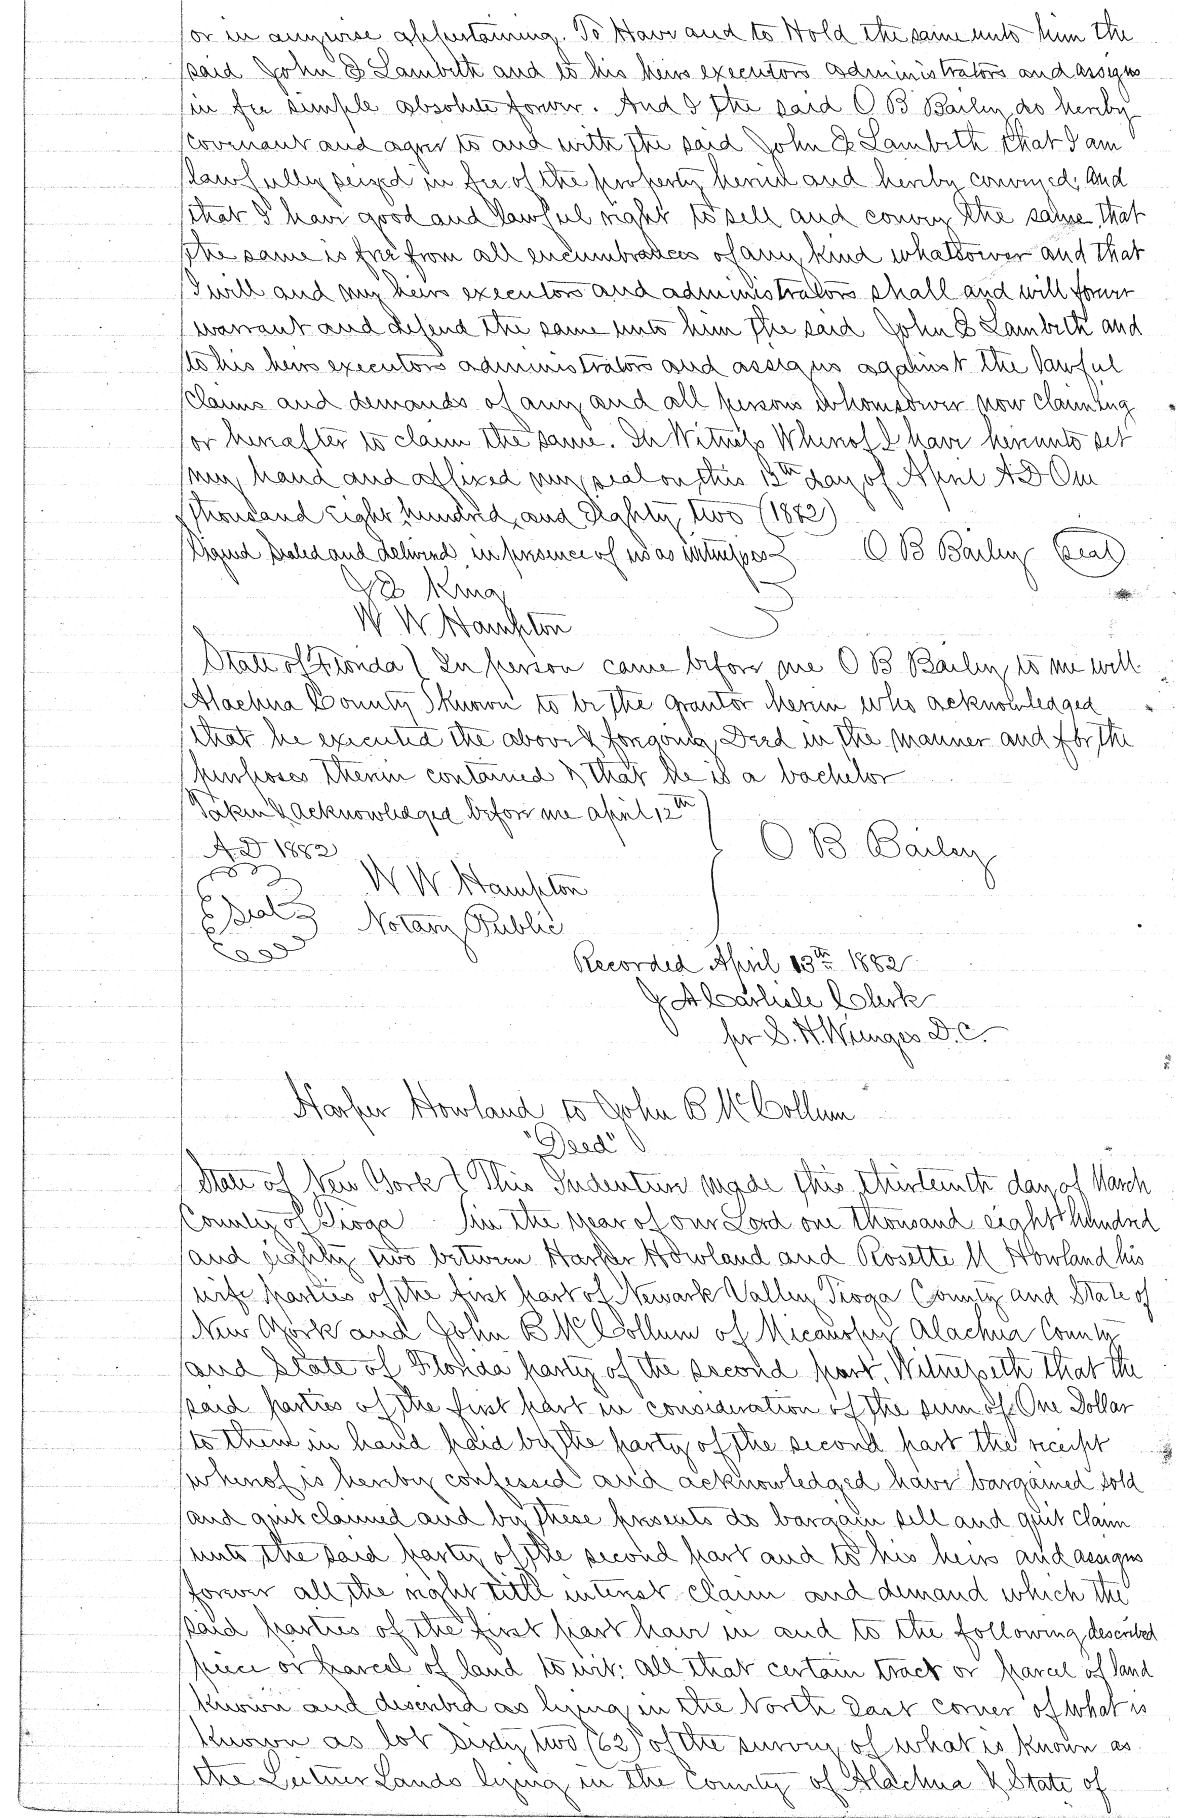 or in anywise appertaining. To Have and to Hold the same unto him the
said John E Lambeth and to his heirs executors administrators and assigns
in fee simple absolute forever. And I the said O B Bailey do hereby
covenant and agree to and with the said John E Lambeth that I am
lawfully seized in fee of the property herein and hereby conveyed; and
that I have good and lawful right to sell and convey the same, that
the same is free from all encumbrances of any kind whatsoever and that
I will and my heirs executors and administrators shall and will forever
warrant and defend the same unto him the said John E Lambeth and
to his heirs executors administrators and assigns against the lawful
claims and demands of any and all persons whomsoever now claiming
or hereafter to claim the same. In Witness Whereof I have hereunto set
my hand and affixed my seal on this 13th day of April A D One
thousand eight hundred and Eighty two (1882)
Signed Sealed and delivered in presence of us as witnesses } O B Bailey (seal)
King
W W Hampton
State of Florida } In person came before me O B Bailey to me well
Alachua County } known to be the grantor herein who acknowledged
that he executed the above & foregoing Deed in the manner and for the
purposes therein contained & that he is a bachelor
Taken & acknowledged before me april 12th }
A.D 1882 O B Bailey
W W Hampton
(Seal) Notary Public
Recorded April 13th 1882
J A Carlisle Clerk
pr S. H. Wienges D.C.
Harper Howland to John B McCollum
"Deed"
State of New York } This Indenture made this thirteenth day of March
County of Tioga } in the year of our Lord one thousand eight hundred
and eighty two between Harper Howland and Rosette M Howland his
wife parties of the first part of Newark Valley Tioga County and State of
New York and John B McCollum of Micanopy Alachua County
and State of Florida party of the second part, Witnesseth that the
said parties of the first part in consideration of the sum of One Dollar
to them in hand paid by the party of the second part the receipt
whereof is hereby confessed and acknowledged have bargained sold
and quit claimed and by these presents do bargain sell and quit claim
unto the said party of the second part and to his heirs and assigns
forever all the right title interest claim and demand which the
said parties of the first part have in and to the following described
piece or parcel of land to wit: all that certain tract or parcel of land
known and described as lying in the North East corner of what is
known as lot Sixty two (62) of the survey of what is known as
the Leitner Lands lying in the County of Alachua & State of